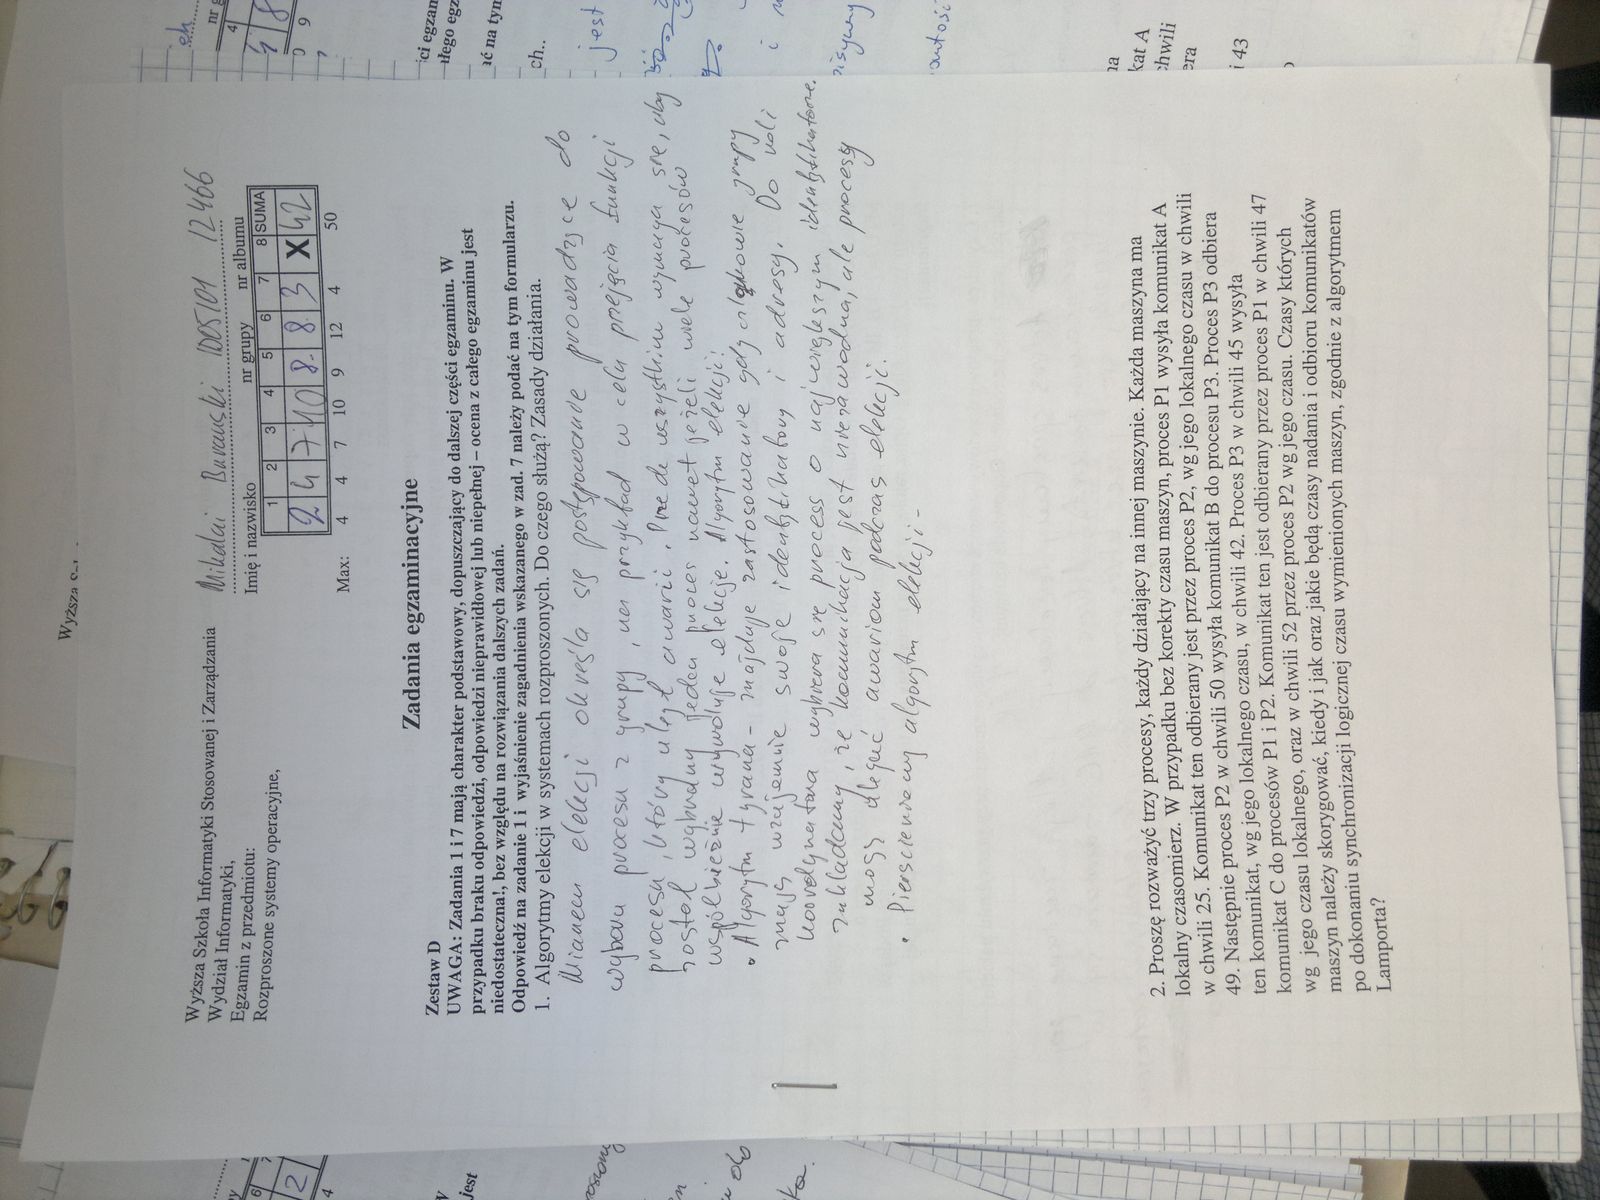 Wyższa
Wyższa Szkoła Informatyki Stosowanej i Zarządzania
Wydział Informatyki,
Egzamin z przedmiotu:
Rozproszone systemy operacyjne,
Mikalai Buranski ID05101 12466
Imię i nazwisko nr grupy nr albumu
1 2 3 4 5 6 7 8 SUMA
2 4 7 10 8 8 3 X 42
Max: 4 4 7 10 9 12 4 50
Zadania egzaminacyjne
Zestaw D
UWAGA: Zadania 1 i 7 mają charakter podstawowy, dopuszczający do dalszej części egzaminu. W
przypadku braku odpowiedzi, odpowiedzi nieprawidłowej lub niepełnej – ocena z całego egzaminu jest
niedostateczna!, bez względu na rozwiązania dalszych zadań.
Odpowiedź na zadanie 1 i wyjaśnienie zagadnienia wskazanego w zad. 7 należy podać na tym formularzu.
1. Algorytmy elekcji w systemach rozproszonych. Do czego służą? Zasady działania.
Mianem elekcji określa się postępowanie prowadzące do
wyboru procesu z grupy, na przykład w celu przejęcia funkcji
procesu, który uległ awarii. Przede wszystkim wymaga się, aby
został wybrany jeden proces nawet jeżeli wiele procesów
współbieżnie wywołuje elekcje. Algorytm elekcji:
• Algorytm tyrana - znajduje zastosowanie gdy członkowie grupy
znają wzajemnie swoje identyfikatory i adresy. Do roli
koordynatora wybiera się process o największym identyfikatorze.
zakładamy, że komunikacja jest niezawodna, ale procesy
mogą ulegać awariom podczas elekcji.
• Pierscieniowy algorytm elekcji -
2. Proszę rozważyć trzy procesy, każdy działający na innej maszynie. Każda maszyna ma
lokalny czasomierz. W przypadku bez korekty czasu maszyn, proces P1 wysyła komunikat A
w chwili 25. Komunikat ten odbierany jest przez proces P2, wg jego lokalnego czasu w chwili
49. Następnie proces P2 w chwili 50 wysyła komunikat B do procesu P3. Proces P3 odbiera
ten komunikat, wg jego lokalnego czasu, w chwili 42. Proces P3 w chwili 45 wysyła
komunikat C do procesów P1 i P2. Komunikat ten jest odbierany przez proces P1 w chwili 47
wg jego czasu lokalnego, oraz w chwili 52 przez proces P2 wg jego czasu. Czasy których
maszyn należy skorygować, kiedy i jak oraz jakie będą czasy nadania i odbioru komunikatów
po dokonaniu synchronizacji logicznej czasu wymienionych maszyn, zgodnie z algorytmem
Lamporta?